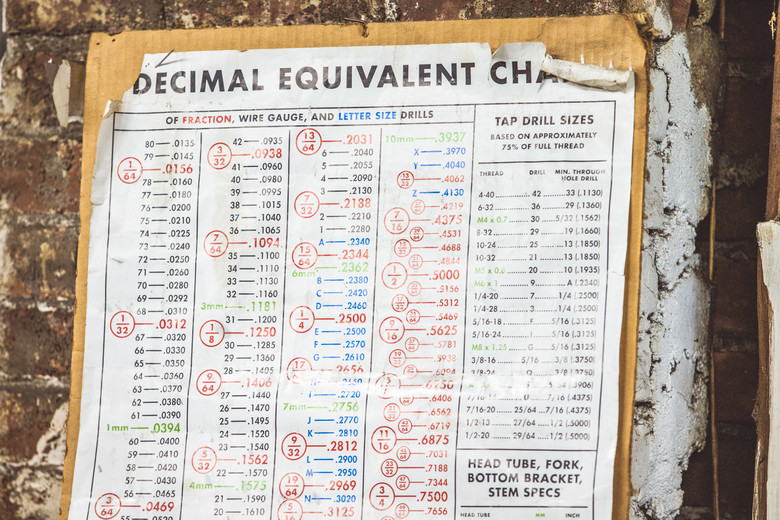 DECIMAL EQUIVALENT CHA
OF FRACTION, WIRE GAUGE, AND LETTER SIZE DRILLS
80 — .0135
79 — .0145
1/64 .0156
78 — .0160
77 — .0180
76 — .0200
75 — .0210
74 — .0225
73 — .0240
72 — .0250
71 — .0260
70 — .0280
69 — .0292
68 — .0310
1/32 .0312
67 — .0320
66 — .0330
65 — .0350
64 — .0360
63 — .0370
62 — .0380
61 — .0390
1mm — .0394
60 — .0400
59 — .0410
58 — .0420
57 — .0430
56 — .0465
3/64 .0469
55 — .0520
42 — .0935
3/32 .0938
41 — .0960
40 — .0980
39 — .0995
38 — .1015
37 — .1040
36 — .1065
7/64 .1094
35 — .1100
34 — .1110
33 — .1130
32 — .1160
3mm — .1181
31 — .1200
1/8 .1250
30 — .1285
29 — .1360
28 — .1405
9/64 .1406
27 — .1440
26 — .1470
25 — .1495
24 — .1520
23 — .1540
5/32 .1562
22 — .1570
4mm — .1575
21 — .1590
20 — .1610
13/64 .2031
6 — .2040
5 — .2055
4 — .2090
3 — .2130
7/32 .2188
2 — .2210
1 — .2280
A — .2340
15/64 .2344
6mm .2362
B — .2380
C — .2420
D — .2460
1/4 .2500
E — .2500
F — .2570
G — .2610
17 .2656
.2720
7mm — .2756
J — .2770
K — .2810
9/32 .2812
L — .2900
M — .2950
19/64 .2969
N — .3020
5 .3125
10mm — .3937
X — .3970
Y — .4040
13/32 .4062
Z — .4130
.4219
7/16 .4375
.4531
.4688
.4844
1/2 .5000
.5156
.5312
.5469
9/16 .5625
.5781
.5938
.6094
.6250
.6406
.6562
.6719
11/16 .6875
.7031
.7188
.7344
3/4 .7500
.7656
TAP DRILL SIZES
BASED ON APPROXIMATELY
75% OF FULL THREAD
THREAD DRILL MIN. THROUGH
HOLE DRILL
4-40 42 33 (.1130)
6-32 36 29 (.1360)
M4 x 0.7 30 5/32 (.1562)
8-32 29 19 (.1660)
10-24 25 13 (.1850)
10-32 21 13 (.1850)
M5 x 0.8 20 10 (.1935)
M6 x 1 9 A (.2340)
1/4-20 7 1/4 (.2500)
1/4-28 3 1/4 (.2500)
5/16-18 F 5/16 (.3125)
5/16-24 I 5/16 (.3125)
M8 x 1.25 G 5/16 (.3125)
3/8-16 5/16 3/8 (.3750)
3/8-24 Q 3/8 (.3750)
(.3906)
U 7/16 (.4375)
7/16-20 25/64 7/16 (.4375)
1/2-13 27/64 1/2 (.5000)
1/2-20 29/64 1/2 (.5000)
HEAD TUBE, FORK,
BOTTOM BRACKET,
STEM SPECS
HEAD TUBE MM INCH